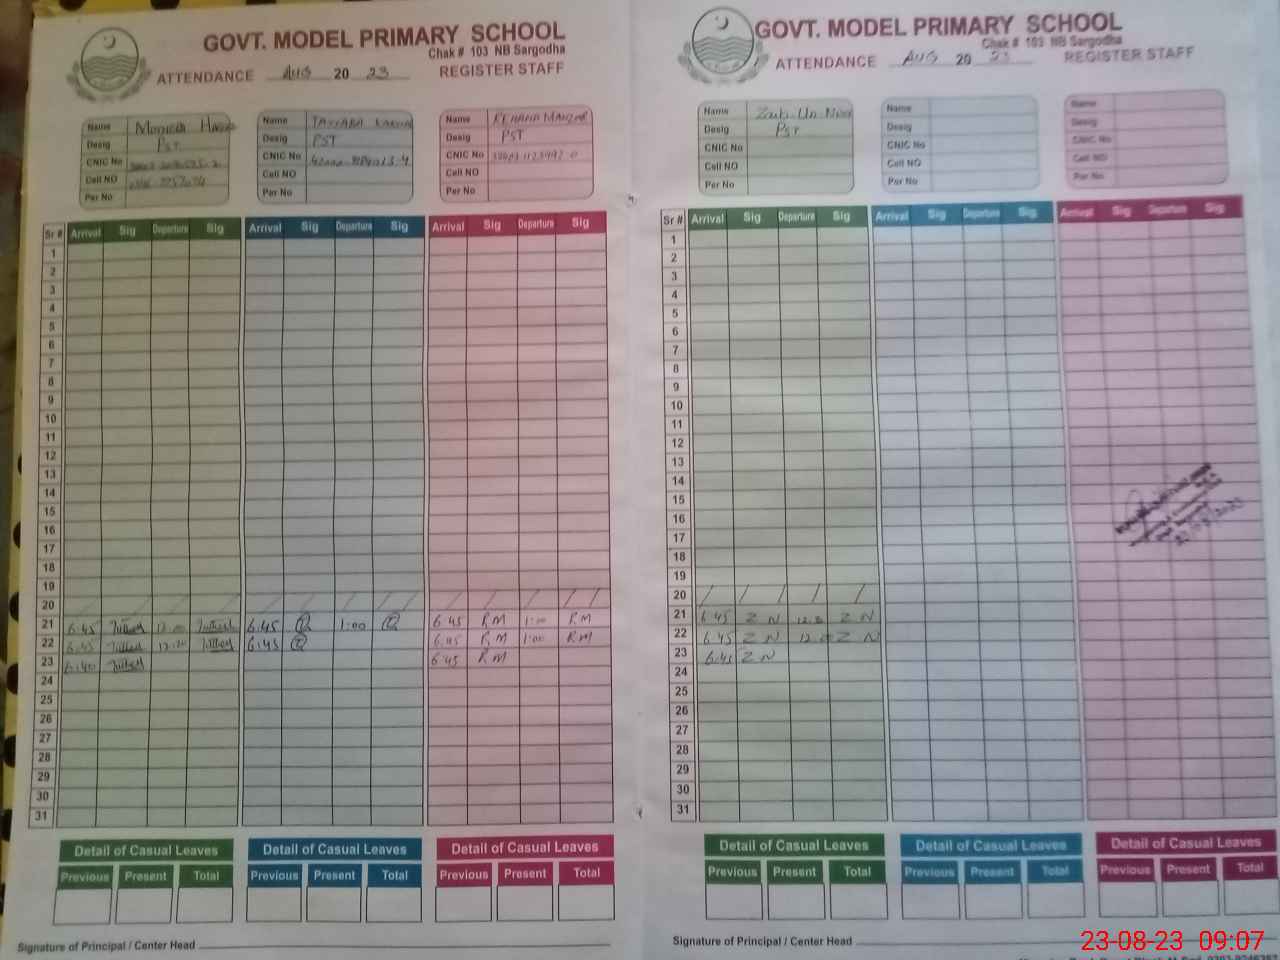 GOVT. MODEL PRIMARY SCHOOL
Chak # 103 NB Sargodha
ATTENDANCE AUG 20 23 REGISTER STAFF
Name
Desig PST
CNIC No
Cell NO
Per No
Name
Desig PST
CNIC No
Cell NO
Per No
Name
Desig PST
CNIC No
Cell NO
Per No
Sr # Arrival Sig Departure Sig Arrival Sig Departure Sig Arrival Sig Departure Sig
1
2
3
4
5
6
7
8
9
10
11
12
13
14
15
16
17
18
19
20 / / / / / / / / / / / /
21 6:45 6:45 1:00 6:45 R.M 1:00 R.M
22 6:45 6:45 6:45 R.M 1:00 R.M
23 6:40 6:45 R.M
24
25
26
27
28
29
30
31
Detail of Casual Leaves Detail of Casual Leaves Detail of Casual Leaves
Previous Present Total Previous Present Total Previous Present Total
Signature of Principal / Center Head
GOVT. MODEL PRIMARY SCHOOL
Chak # 103 NB Sargodha
ATTENDANCE AUG 20 23 REGISTER STAFF
Name
Desig PST
CNIC No
Cell NO
Per No
Name
Desig
CNIC No
Cell NO
Per No
Name
Desig
CNIC No
Cell NO
Per No
Sr # Arrival Sig Departure Sig Arrival Sig Departure Sig Arrival Sig Departure Sig
1
2
3
4
5
6
7
8
9
10
11
12
13
14
15
16
17
18
19
20 / / / / /
21 6:45 Z N Z N
22 6:45 Z N Z N
23 6:45 Z N
24
25
26
27
28
29
30
31
Detail of Casual Leaves Detail of Casual Leaves Detail of Casual Leaves
Previous Present Total Previous Present Total Previous Present Total
Signature of Principal / Center Head
23-08-23 09:07